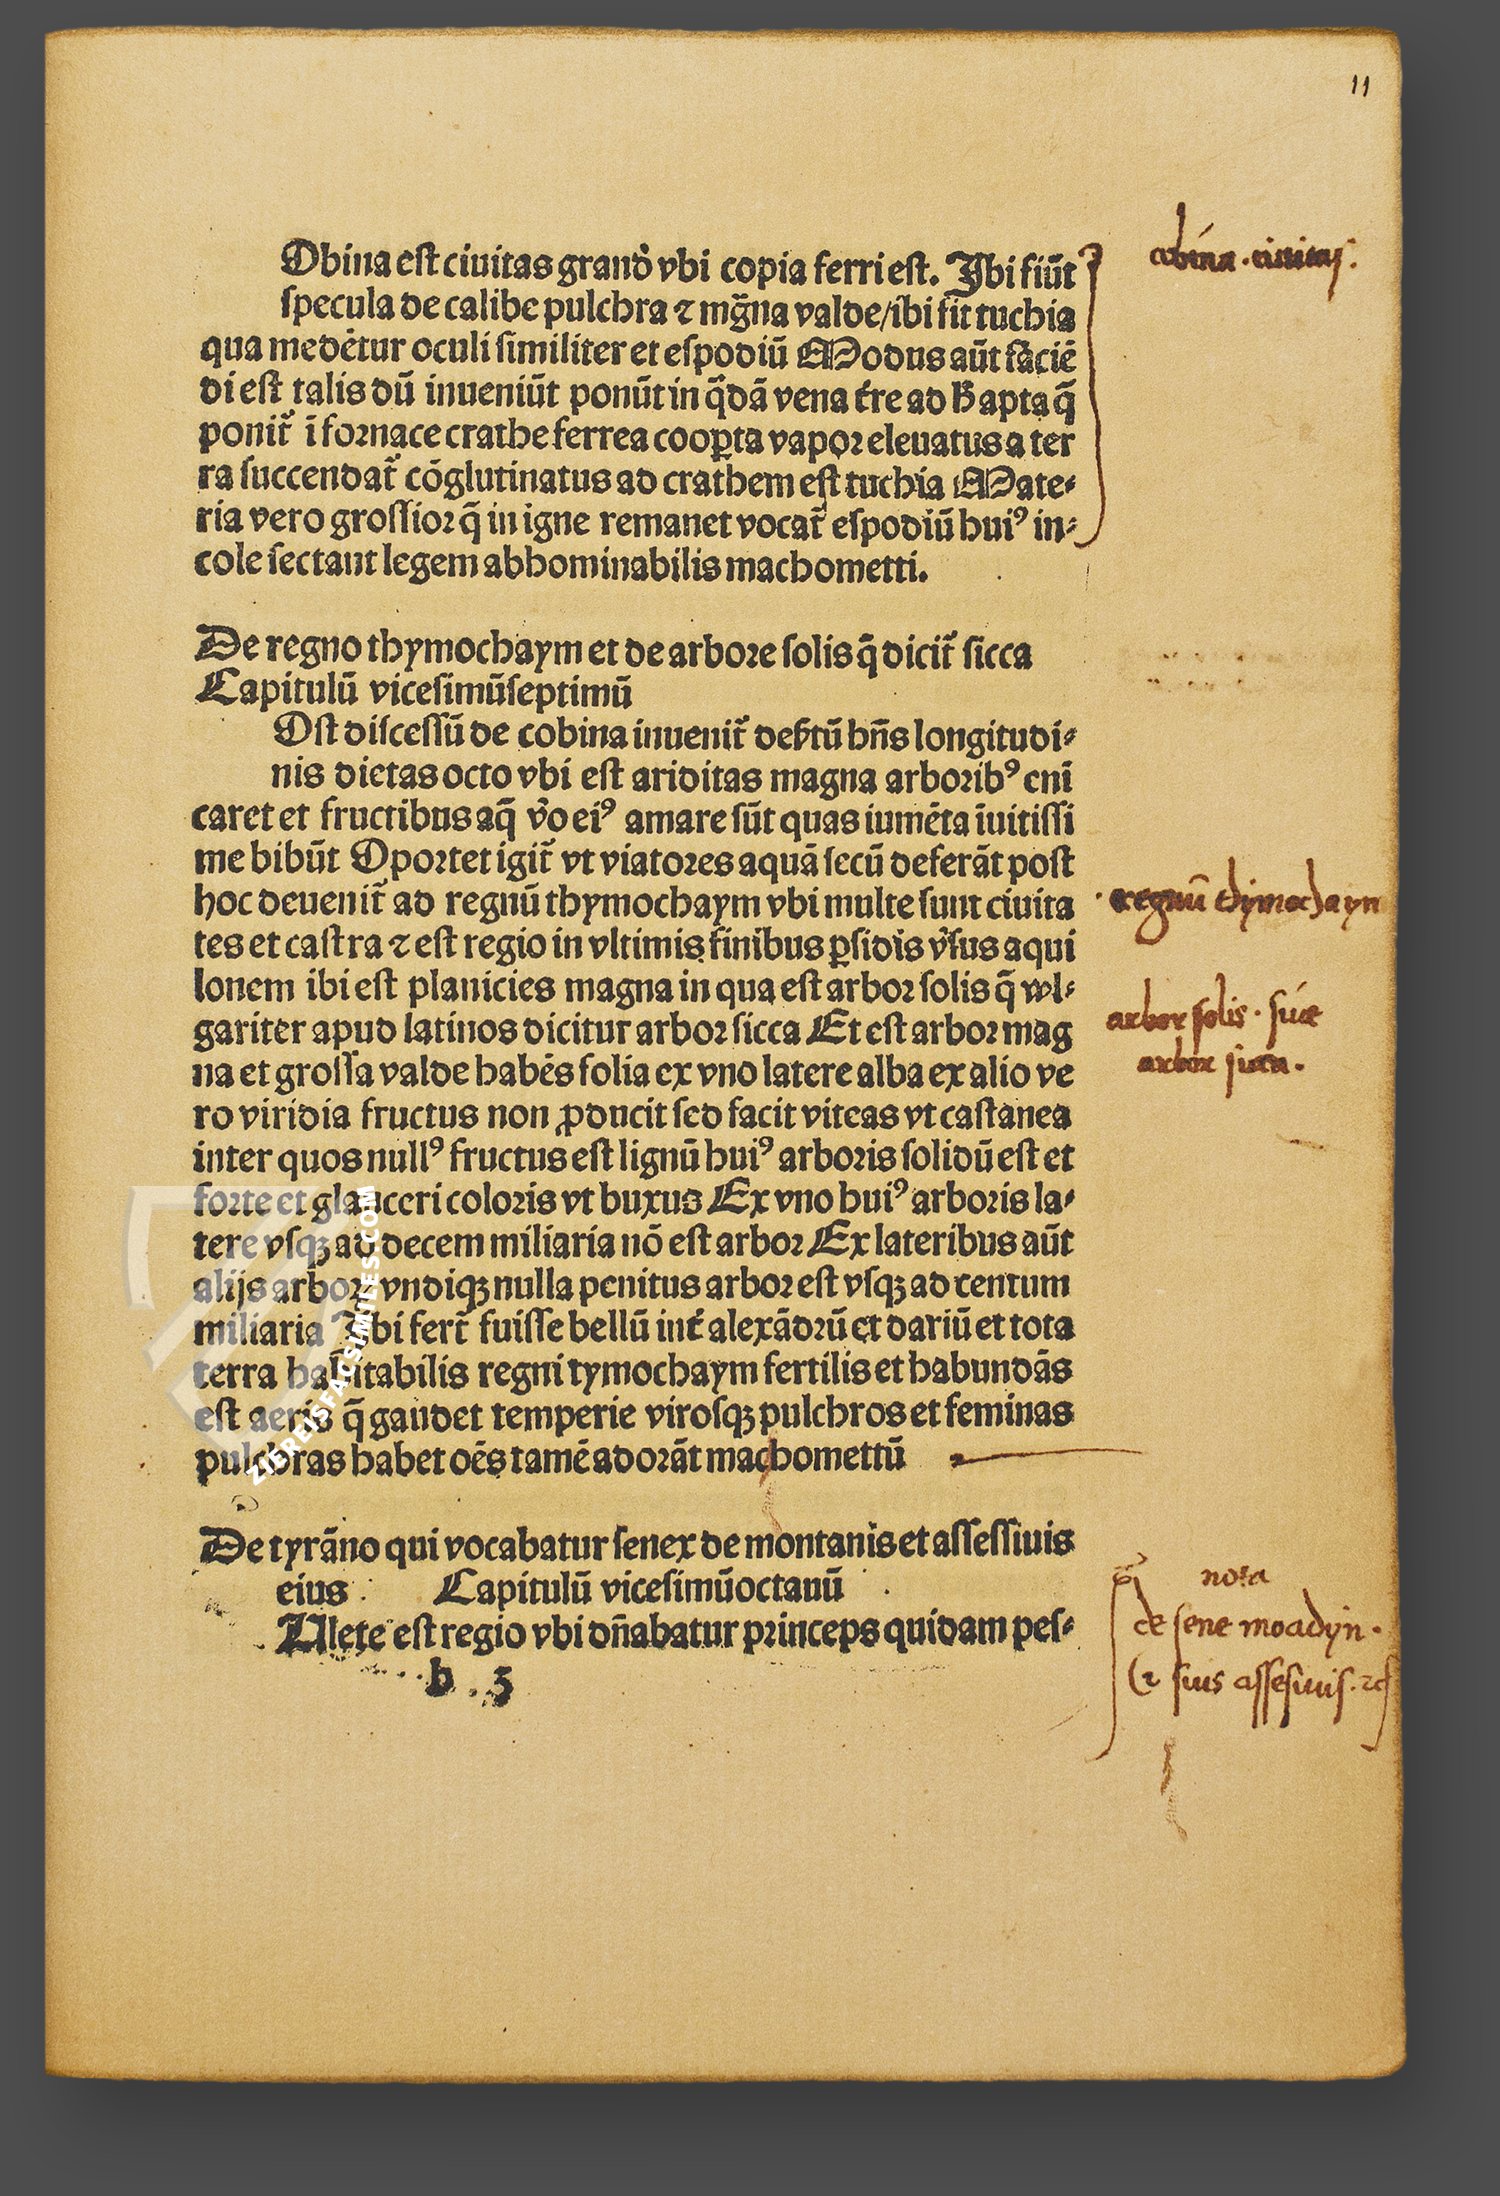 11
Obina est ciuitas grand̓ vbi copia ferri est. Ibi fiūt
specula de calibe pulchra ⁊ mḡna valde/ibi fit tuchia
qua medētur oculi similiter et espodiū Modus aūt faciē
di est talis dū inueniūt ponūt in q̄dā vena t́re ad apta q̄
ponit᷑ ī fornace crathe ferrea coop̱ta vapor eleuatus a ter
ra succendat᷑ cōglutinatus ad crathem est tuchia Mate⸗
ria vero grossior q̄ in igne remanet vocat᷑ espodiū huiꝰ in⸗
cole sectant legem abhominabilis machometti.
cobina . ciuitas.
De regno thymochaym et de arbore solis q̄ dicit᷑ sicca
Capitulū vicesimūseptimū
Ost discessū de cobina inuenit᷑ deẜtū hn̄s longitudi⸗
nis dietas octo vbi est ariditas magna arboribꝰ eni
caret et fructibus aq̄ v̓o eiꝰ amare sūt quas iumēta īuitissi
me bibūt Oportet igit᷑ vt viatores aquā secū deferāt post
hoc deuenit᷑ ad regnū thymochaym vbi multe sunt ciuita
tes et castra ⁊ est regio in vltimis finibus ꝑsidis v̓sus aqui
lonem ibi est planicies magna in qua est arbor solis q̄ wl⸗
gariter apud latinos dicitur arbor sicca Et est arbor mag
na et grossa valde habēs folia ex vno latere alba ex alio ve
ro viridia fructus non ꝓducit sed facit viteas vt castanea
inter quos nullꝰ fructus est lignū huiꝰ arboris solidū est et
forte et glauceri coloris vt buxus Ex vno huiꝰ arboris la⸗
tere vsqꝫ ad decem miliaria nō est arbor Ex lateribus aūt
alijs arbor vndiqꝫ nulla penitus arbor est vsqꝫ ad centum
miliaria Ibi fert᷑ fuisse bellū int́ alexādrū et dariū et tota
terra habitabilis regni tymochaym fertilis et habundās
est aeris q̄ gaudet temperie virosqꝫ pulchros et feminas
pulchras habet oēs tamē adorāt machomettū
regnū thymochayn
arbor solis . siue
arbor sicca.
De tyrāno qui vocabatur senex de montanis et assessiuis
eius Capitulū vicesimūoctauū
Ulete est regio vbi dn̄abatur princeps quidam pes⸗
b 3
nota
de sene
⁊ suis assesiuis.
ZIEREISFACSIMILES.COM